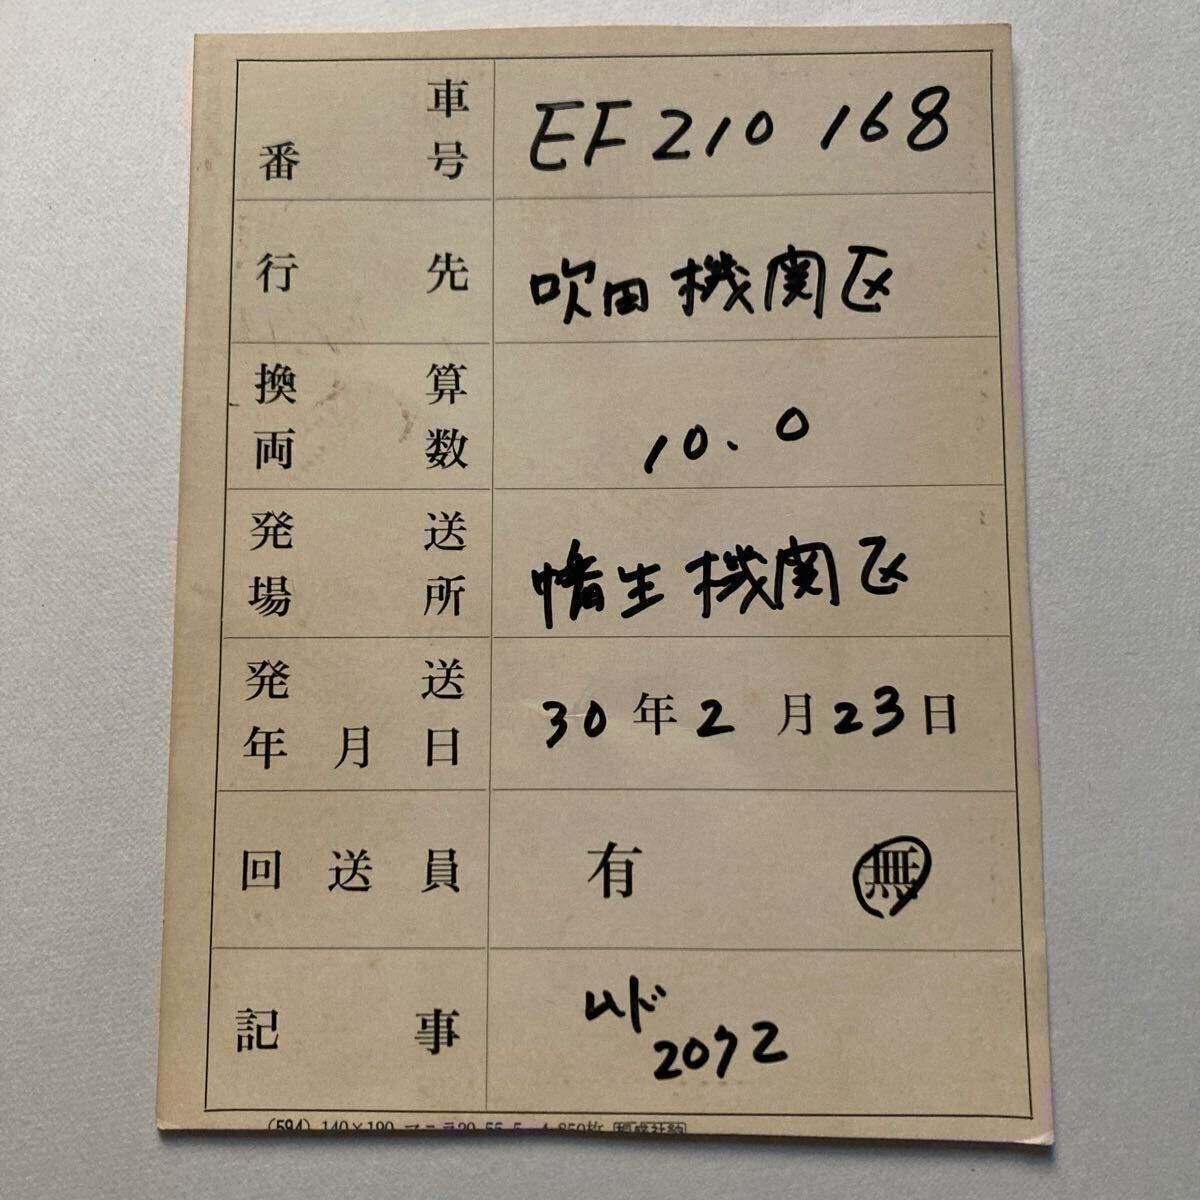 車番号 EF210 168
行先 吹田機関区
換算両数 10.0
発送場所 幡生機関区
発送年月日 30年2月23日
回送員 有 無
記事 ムド
2092
(594) 140×190